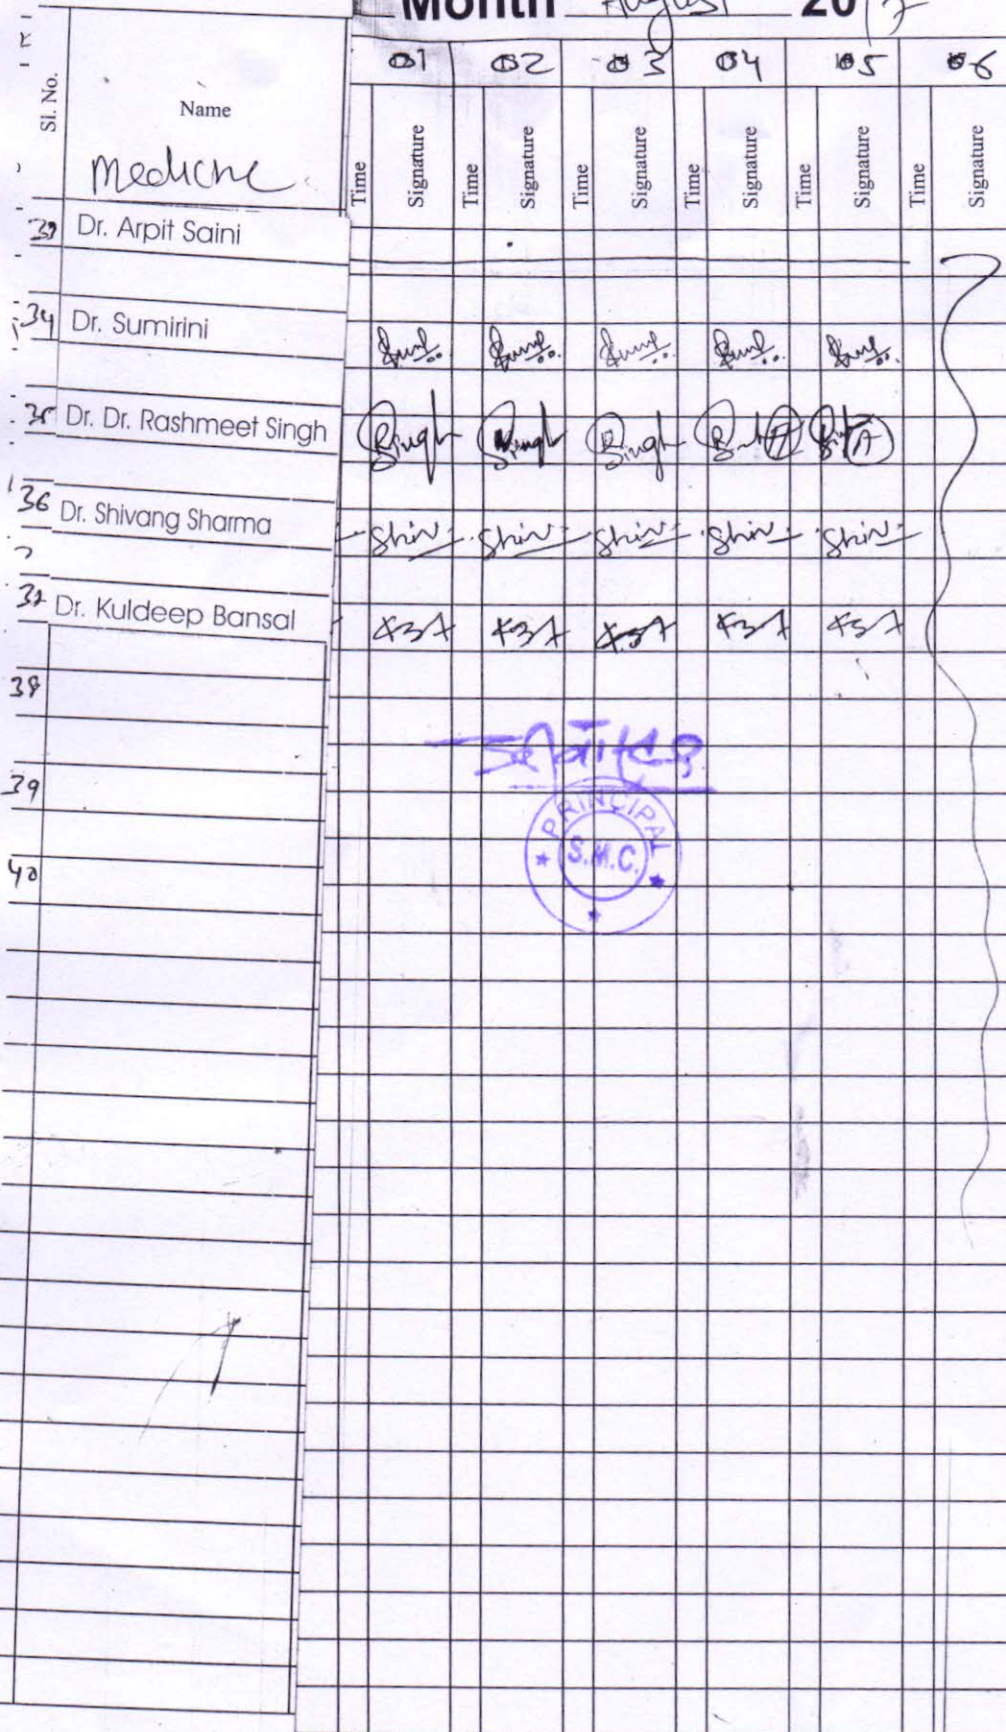 Month August 2017
Sl. No. Name 01 02 03 04 05 06
Medicine
Time Signature Time Signature Time Signature Time Signature Time Signature Time Signature
Dr. Arpit Saini
34 Dr. Sumirini
35 Dr. Dr. Rashmeet Singh Singh Singh Singh (A) (A)
36 Dr. Shivang Sharma Shiv Shiv Shiv Shiv Shiv
Dr. Kuldeep Bansal
38
39
PRINCIPAL
S.M.C.
40